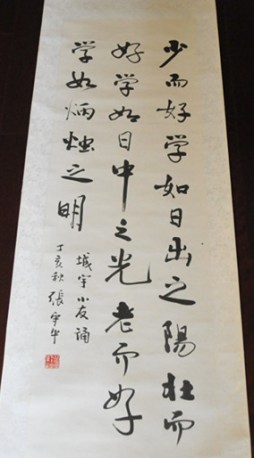 少而好学如日出之陽壮而
好学如日中之光老而好
学如炳燭之明
城宇小友诵
丁亥秋張